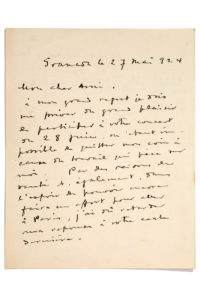 le 27 Mai 924
Mon cher Ami,
à mon grand regret je dois
me priver du grand plaisir
de participer à votre concert
du 28 juin, m'étant im-
possible de quitter mon coin à
cause du travail qui pèse sur
moi. Par des raisons de
santé également, dans
l'espoir de pouvoir encore
faire un effort pour aller
à Paris, j'ai dû retarder
ma réponse à votre carte
dernière.